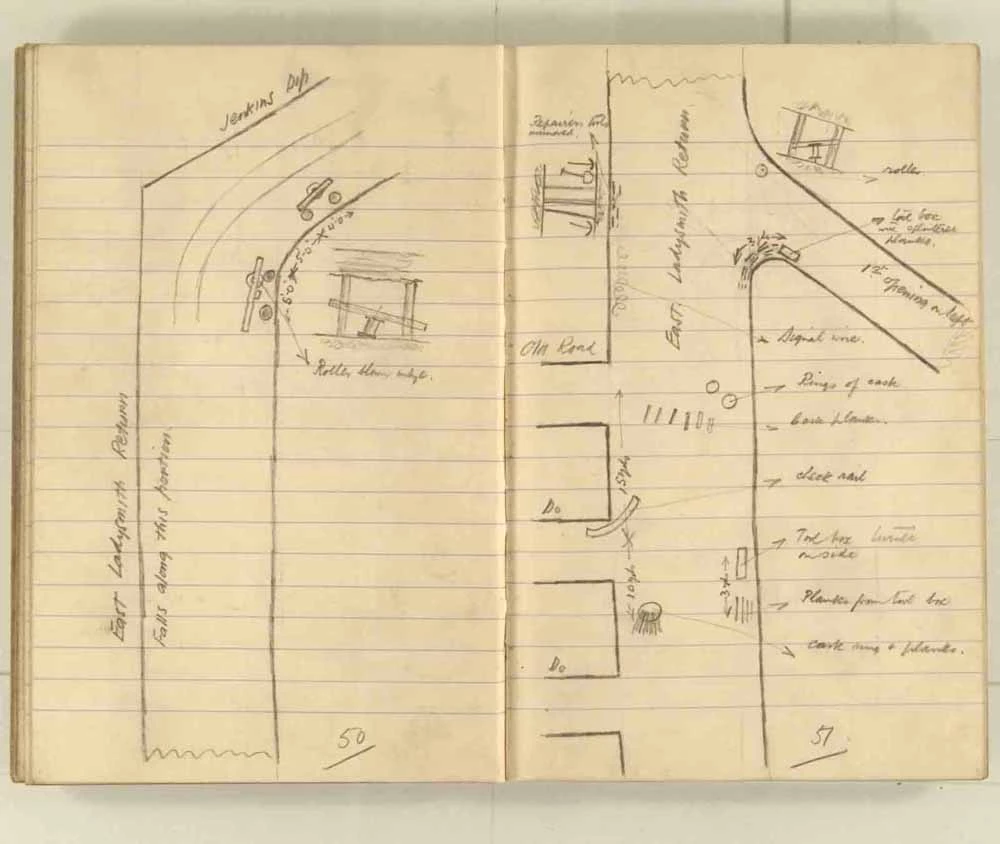 Jenkins Dip
4'.0"
5'.0"
5'.0"
Roller blown
East Ladysmith Return
Falls along this portion
50
Repairers tools
removed.
East Ladysmith Return
roller
Tool box
planks.
1st opening on left
Old Road
Signal wire.
Rings of cask
planks.
15 yds
check rail
Do
Tool box
on side
10 yds
3 yds
Planks from tool box
cask ring & planks.
Do
51